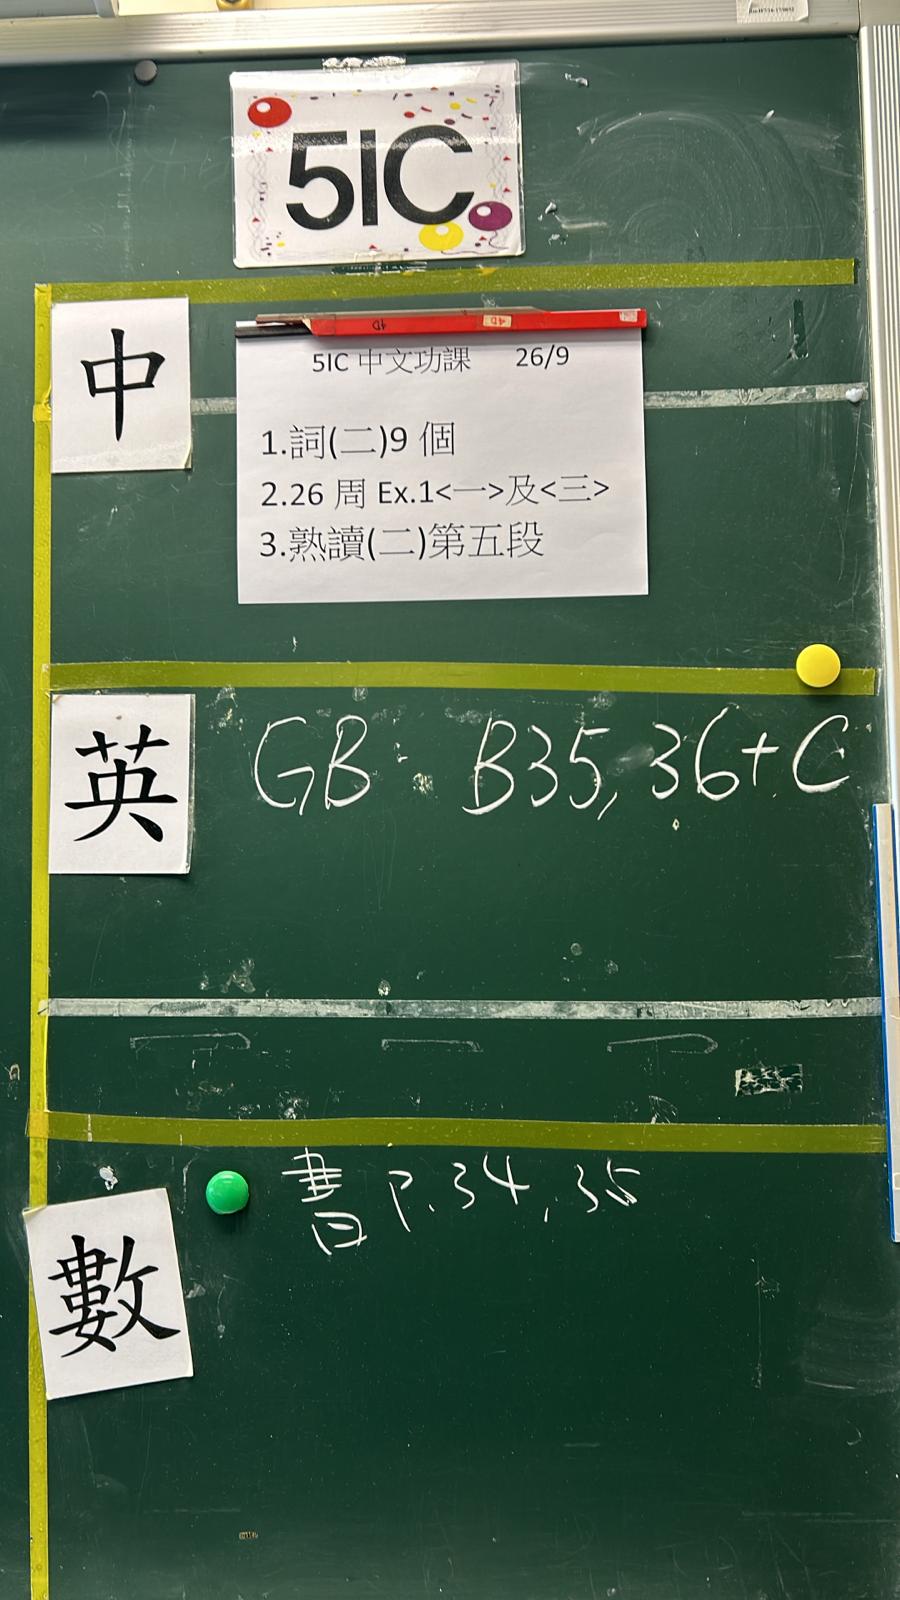 5IC
中
5IC 中文功課 26/9
1.詞(二)9 個
2.26 周 Ex.1<一>及<三>
3.熟讀(二)第五段
英
GB: B35, 36+C
數
書 P.34, 35